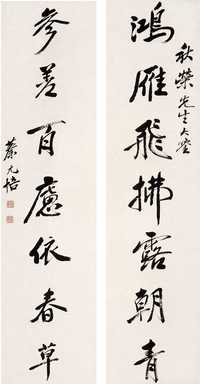 鴻雁飛拂露朝青
秋榮先生大鑒
參差百慮依春草
蔡元培